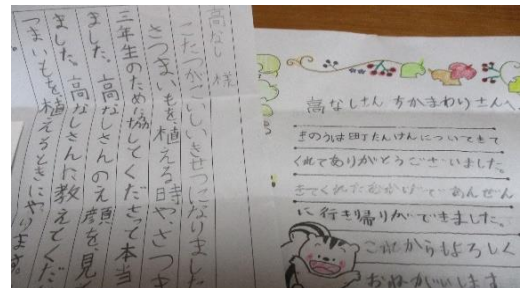 高なし 様
こたつがこいしいきせつになりました
さつまいもを植える時や、さつま
三年生のため協してくださって本当
ました。高なしさんのえ顔を、見
ました。高なしさんに教えてくだ
つまいもを植えるときにやります。
高なしさん ちかまわりさんへ
きのうは町たんけんについてきて
くれてありがとうございました。
きてくれたおかげであんぜん
に行き帰りができました。
これからもよろしく
おねがいします